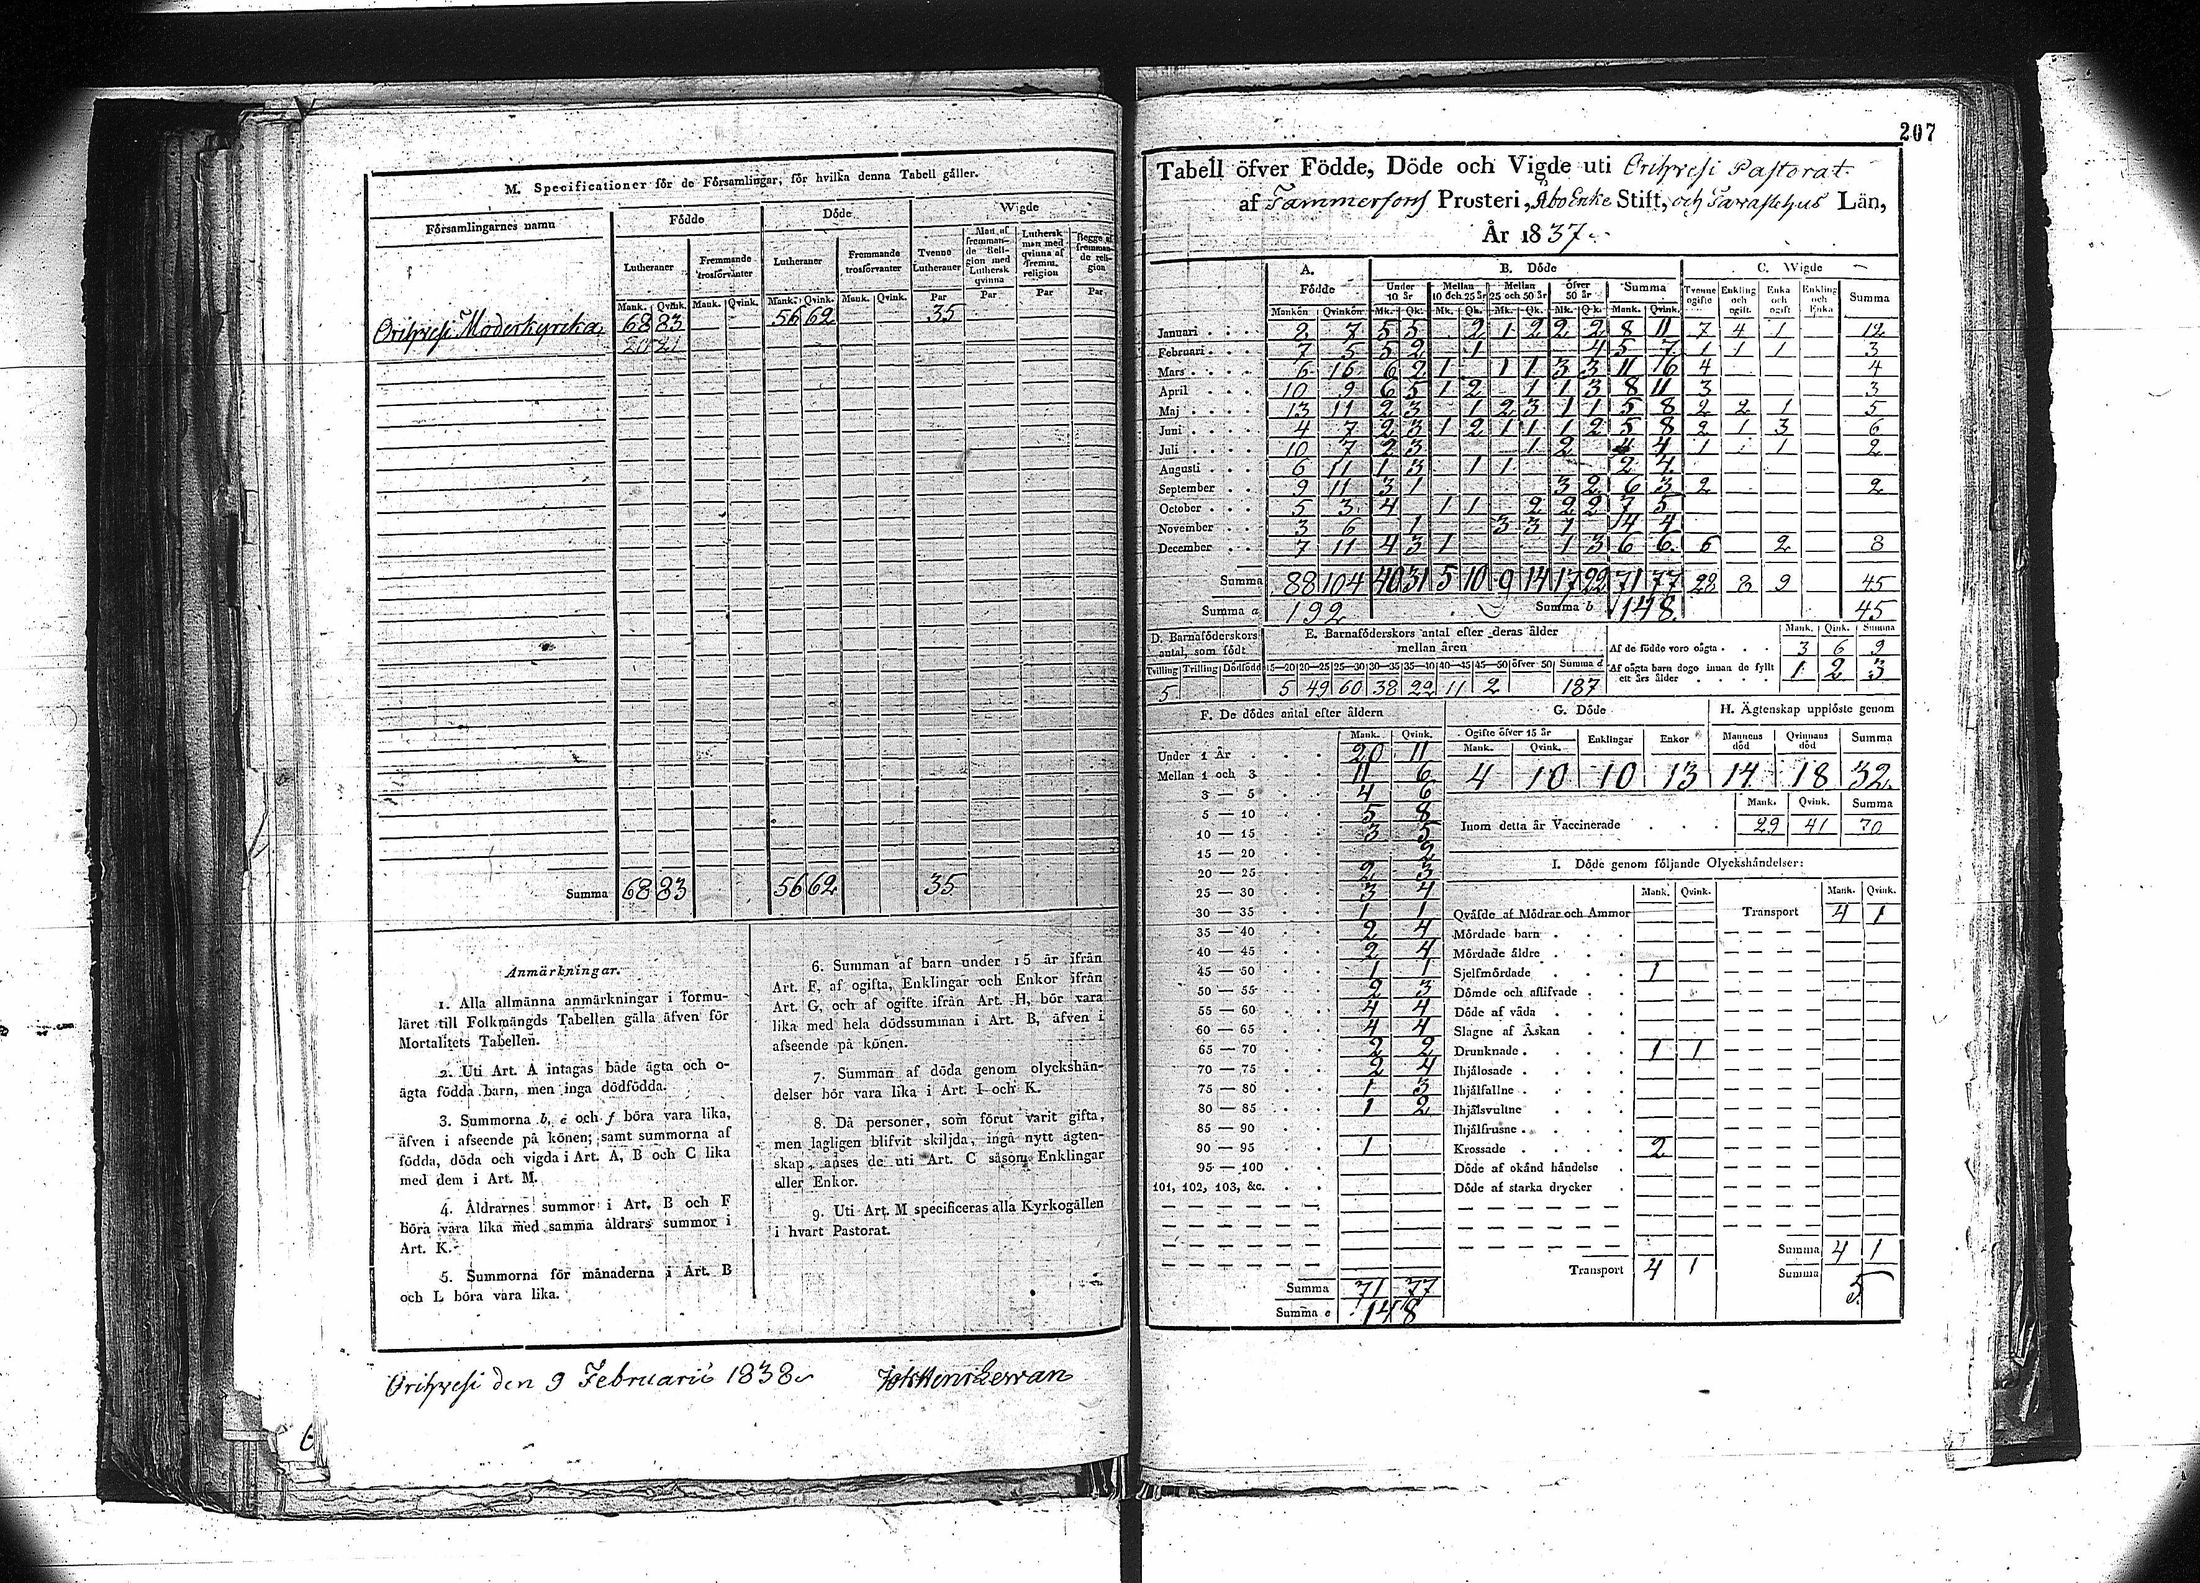 M. Specificationer för de Församlingar, för hvilka denna Tabell gäller.
Församlingarnes namn Födde Döde Wigde
Lutheraner Fremmande trosförvanter Lutheraner Fremmande trosförvanter Tvenne Lutheraner Man af fremmande Religion med Luthersk qvinna Luthersk man med qvinna af fremm. religion Begge af fremmande religion
Mank. Qvink. Mank. Qvink. Mank. Qvink. Mank. Qvink. Par Par Par Par
Orihvesi Moderkyrka 68 83 56 62 35
20 21
Summa 68 83 56 62 35
Anmärkningar.
1. Alla allmänna anmärkningar i Formu-
läret till Folkmängds Tabellen gälla äfven för
Mortalitets Tabellen.
2. Uti Art. A intagas både ägta och o-
ägta födda barn, men inga dödfödda.
3. Summorna b, e och f böra vara lika,
äfven i afseende på könen; samt summorna af
födda, döda och vigda i Art. A, B och C lika
med dem i Art. M.
4. Åldrarnes summor i Art. B och F
böra vara lika med samma åldrars summor i
Art. K.
5. Summorna för månaderna i Art. B
och L böra vara lika.
6. Summan af barn under 15 år ifrån
Art. F, af ogifta, Enklingar och Enkor ifrån
Art. G, och af ogifte ifrån Art. H, bör vara
lika med hela dödssumman i Art. B, äfven i
afseende på könen.
7. Summan af döda genom olyckshän-
delser bör vara lika i Art. I och K.
8. Då personer, som förut varit gifta,
men lagligen blifvit skiljda, ingå nytt ägten-
skap, anses de uti Art. C såsom Enklingar
eller Enkor.
9. Uti Art. M specificeras alla Kyrkogällen
i hvart Pastorat.
Orihvesi den 9 Februarii 1838
207
Tabell öfver Födde, Döde och Vigde uti Orihvesi Pastorat
af Tammerfors Prosteri, Åbo Erke Stift, och Tavastehus Län,
År 1837
A. Födde B. Döde C. Wigde
Under 10 år Mellan 10 och 25 år Mellan 25 och 50 år Öfver 50 år Summa Tvenne ogifte Enkling och ogift Enka och ogift Enkling och Enka Summa
Mankön Qvinkön Mk. Qk. Mk. Qk. Mk. Qk. Mk. Qk. Mank. Qvink.
Januari 2 7 5 5 2 1 2 2 2 8 11 7 4 1 12
Februari 7 5 5 2 1 4 5 7 1 1 1 3
Mars 6 16 6 2 1 1 1 3 3 11 16 4 4
April 10 9 6 5 1 2 1 1 3 8 11 3 3
Maj 13 11 2 3 1 2 3 1 1 5 8 2 2 1 5
Juni 4 7 2 3 1 2 1 1 1 2 5 8 2 1 3 6
Juli 10 7 2 3 1 2 4 4 1 1 2
Augusti 6 11 1 3 1 1 2 4
September 9 11 3 1 3 2 6 3 2 2
October 5 3 4 1 1 2 2 2 7 5
November 3 6 1 3 3 1 14 4
December 7 11 4 3 1 1 3 6 6 6 2 8
Summa 88 104 40 31 5 10 9 14 17 22 71 77 28 8 9 45
Summa a 192 Summa b 148 45
D. Barnaföderskors antal, som födt E. Barnaföderskors antal efter deras ålder mellan åren Mank. Qink. Summa
Af de födde voro oägta 3 6 9
Tvilling Trilling Dödfödd 15—20 20—25 25—30 30—35 35—40 40—45 45—50 öfver 50 Summa d Af oägta barn dogo innan de fyllt ett års ålder 1 2 3
5 5 49 60 38 22 11 2 187
F. De dödes antal efter åldern
Mank. Qvink.
Under 1 År 20 11
Mellan 1 och 3 11 6
3 — 5 4 6
5 — 10 5 8
10 — 15 3 5
15 — 20 2
20 — 25 2 3
25 — 30 3 4
30 — 35 1 1
35 — 40 2 4
40 — 45 2 4
45 — 50 1 1
50 — 55 2 3
55 — 60 4 4
60 — 65 4 4
65 — 70 2 2
70 — 75 2 4
75 — 80 1 3
80 — 85 1 2
85 — 90
90 — 95 1
95 — 100
101, 102, 103, &c.
Summa 71 77
Summa e 148
G. Döde H. Ägtenskap upplöste genom
Ogifte öfver 15 år Enklingar Enkor Mannens död Qvinnans död Summa
Mank. Qvink.
4 10 10 13 14 18 32
Mank. Qvink. Summa
Inom detta år Vaccinerade 29 41 70
I. Döde genom följande Olyckshändelser:
Mank. Qvink. Mank. Qvink.
Qväfde af Mödrar och Ammor Transport 4 1
Mördade barn
Mördade äldre
Sjelfmördade 1
Dömde och aflifvade
Döde af våda
Slagne af Åskan
Drunknade 1 1
Ihjälosade
Ihjälfallne
Ihjälsvultne
Ihjälfrusne
Krossade 2
Döde af okänd händelse
Döde af starka drycker
Summa 4 1
Transport 4 1 Summa 5